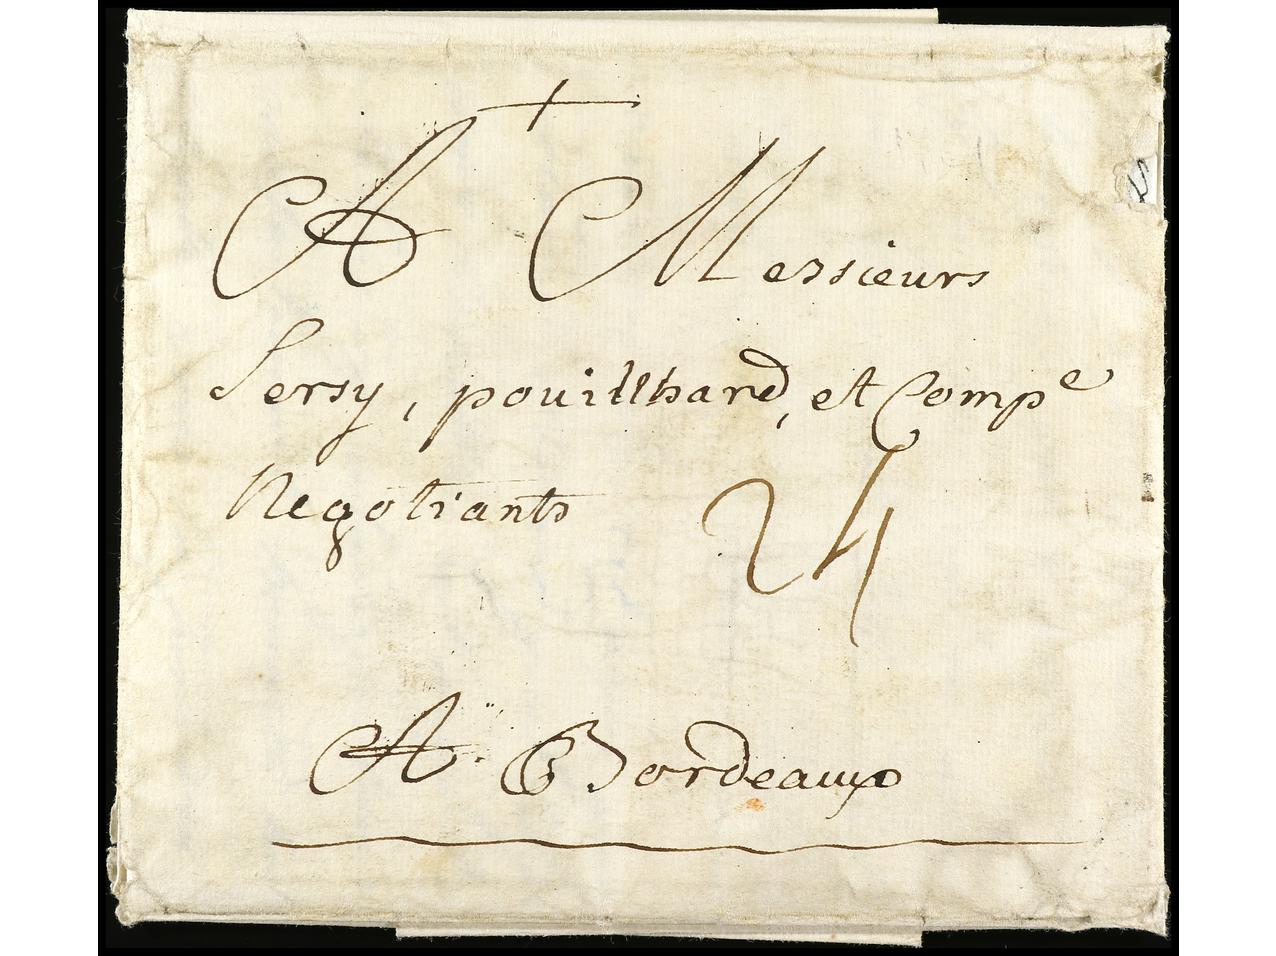 A Messieurs
Sersy, pouillhard, et Compe
Negotiants
24
A Bordeaux